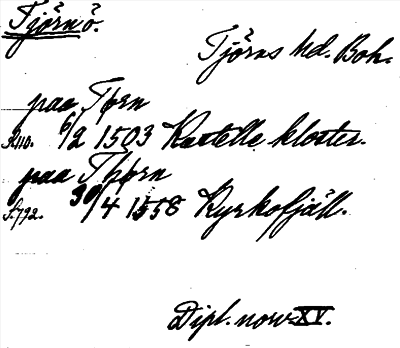 Tjörn ö.
Tjörns hd. Boh.
paa Tørn
S. 110. 6/2 1503 Kastelle kloster.
paa Thørn
S. 792. 30/4 1558 Kyrkofjäll.
Dipl. norv. XV.